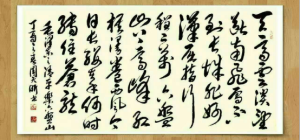 天高雲淡望
断南飛雁不
到长城非好
漢屈指行程
二万六盘
山上高峰红
旗漫卷西风今
日长缨在手何时
缚住苍龍
毛泽东词清平乐六盘山